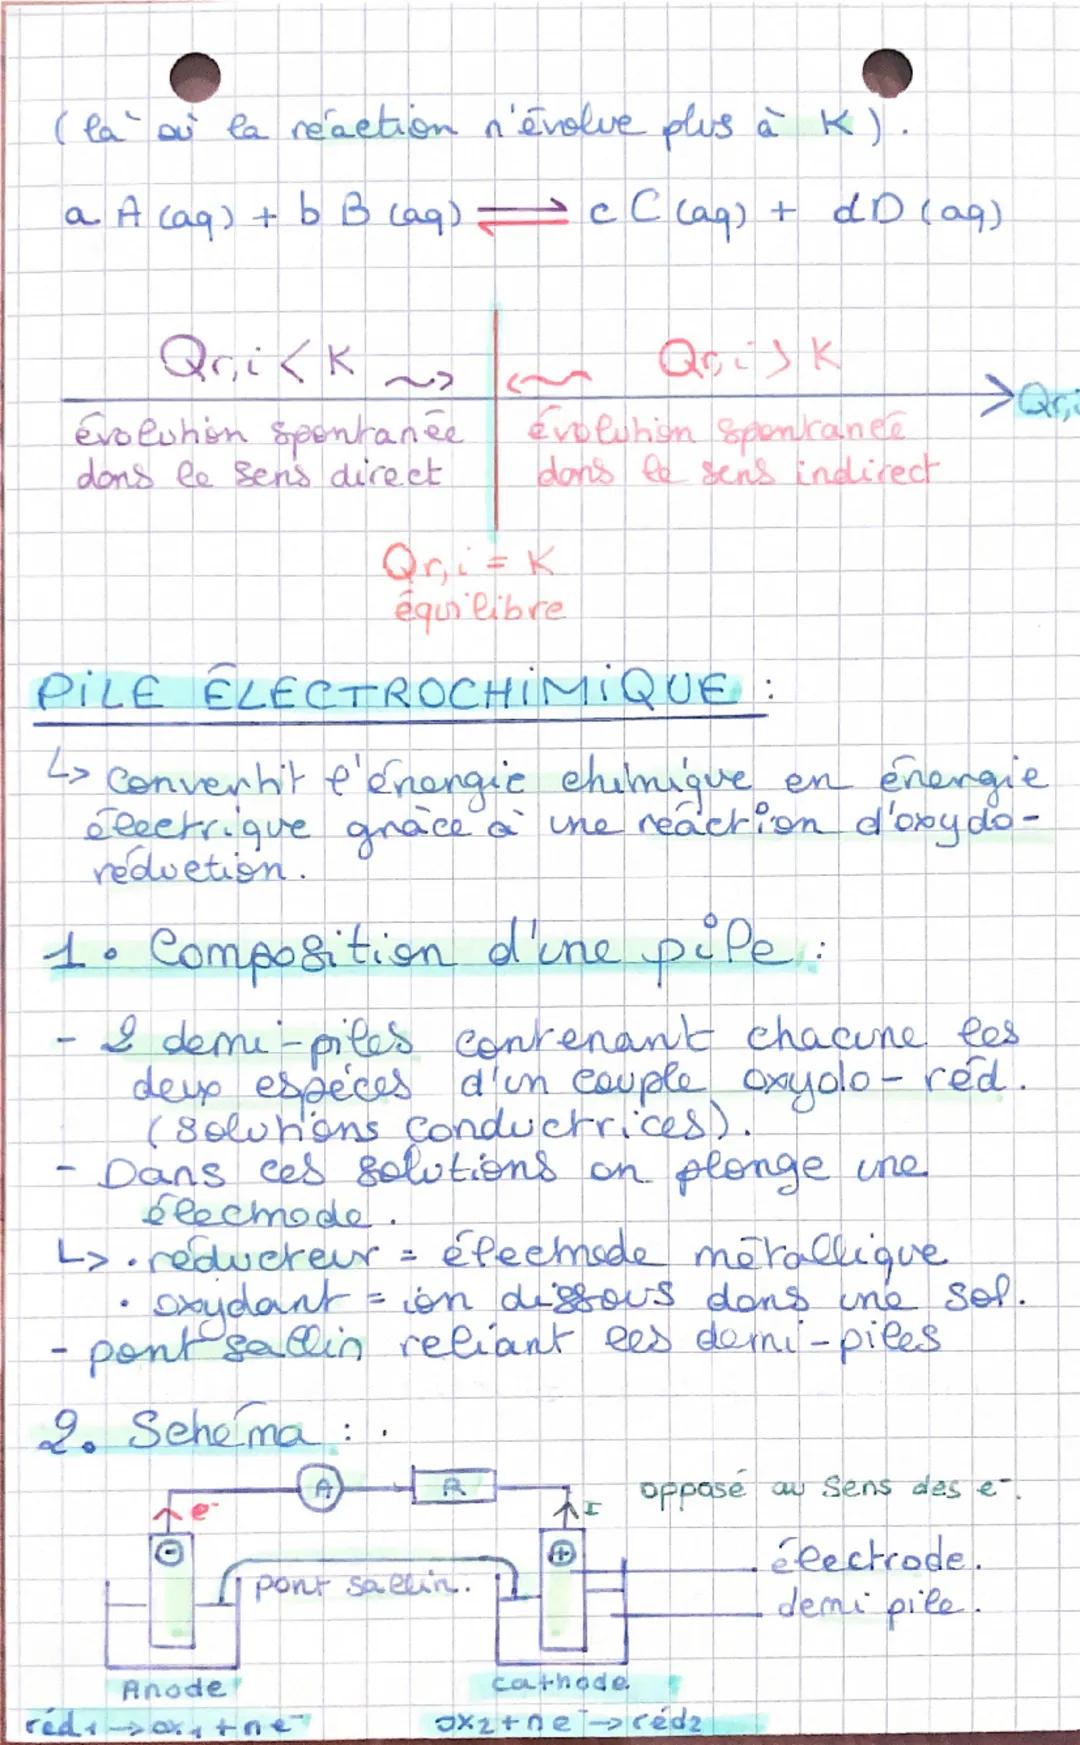 (là où la réaction n'évolue plus à K).
a A (aq) + b B (aq) ⇌ c C (aq) + d D (aq)
Qr,i < K ⇝ ⇜ Qr,i > K
Qr,i
évolution spontanée
dans le sens direct
évolution spontanée
dans le sens indirect
Qr,i = K
équilibre
PILE ÉLECTROCHIMIQUE :
↳ Convertit l'énergie chimique en énergie
électrique grâce à une réaction d'oxydo-
réduction.
1. Composition d'une pile :
- 2 demi-piles contenant chacune les
deux espèces d'un couple oxydo-réd.
(solutions conductrices).
- Dans ces solutions on plonge une
électrode.
↳ • réducteur = électrode métallique
• oxydant = ion dissous dans une sol.
- pont sallin reliant les demi-piles
2. Schéma :
A R
opposé au sens des e⁻.
e⁻ I
- +
pont sallin.
électrode.
demi pile.
Anode cathode
réd₁ → ox₁ + ne⁻ ox₂ + ne⁻ → réd₂